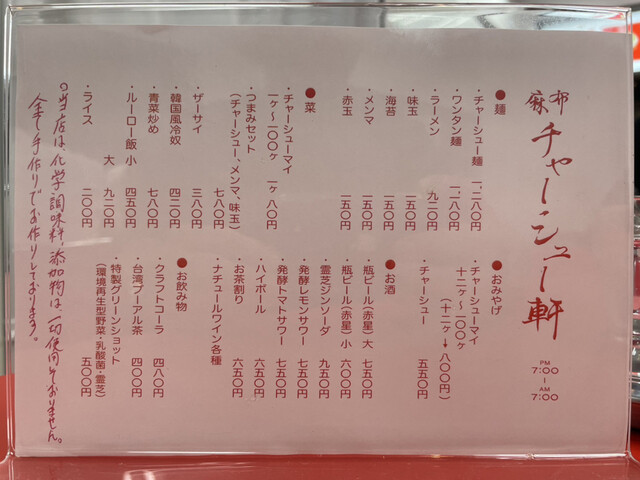 麻布
チャーシュー軒
PM
7:00
|
AM
7:00
●麺
・チャーシュー麺 一、二八〇円
・ワンタン麺 一、一八〇円
・ラーメン 九二〇円
・味玉 一五〇円
・海苔 一五〇円
・メンマ 一五〇円
・赤玉 一五〇円
●菜
・チャーシューマイ
一ヶ〜一〇〇ヶ 一ヶ八〇円
・つまみセット 七八〇円
(チャーシュー、メンマ、味玉)
・ザーサイ 三八〇円
・韓国風冷奴 四二〇円
・青菜炒め 七八〇円
・ルーロー飯 小 四五〇円
大 九二〇円
・ライス 二〇〇円
●おみやげ
・チャーシューマイ
十二ヶ〜一〇〇ヶ
(十二ヶ→八〇〇円)
・チャーシュー 五五〇円
●お酒
・瓶ビール(赤星) 大 七五〇円
・瓶ビール(赤星) 小 六〇〇円
・霊芝ジンソーダ 九五〇円
・発酵レモンサワー 七五〇円
・発酵トマトサワー 七五〇円
・ハイボール 六五〇円
・お茶割り 六五〇円
・ナチュールワイン各種
●お飲み物
・クラフトコーラ 四八〇円
・台湾プーアル茶 四〇〇円
・特製グリーンショット 五〇〇円
(環境再生型野菜・乳酸菌・霊芝)
○当店は、化学調味料、添加物は、一切使用しておりません。
全て手作りでお作りしております。